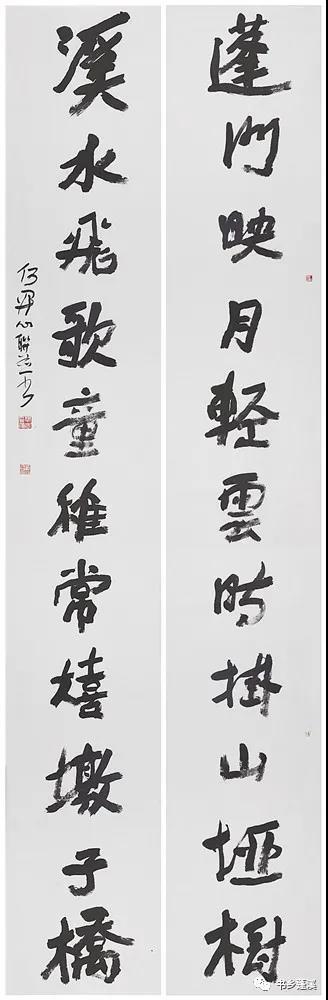 蓬門映月輕雲時掛山埡樹
溪水飛歌童稚常嬉墩子橋
书乡蓬溪